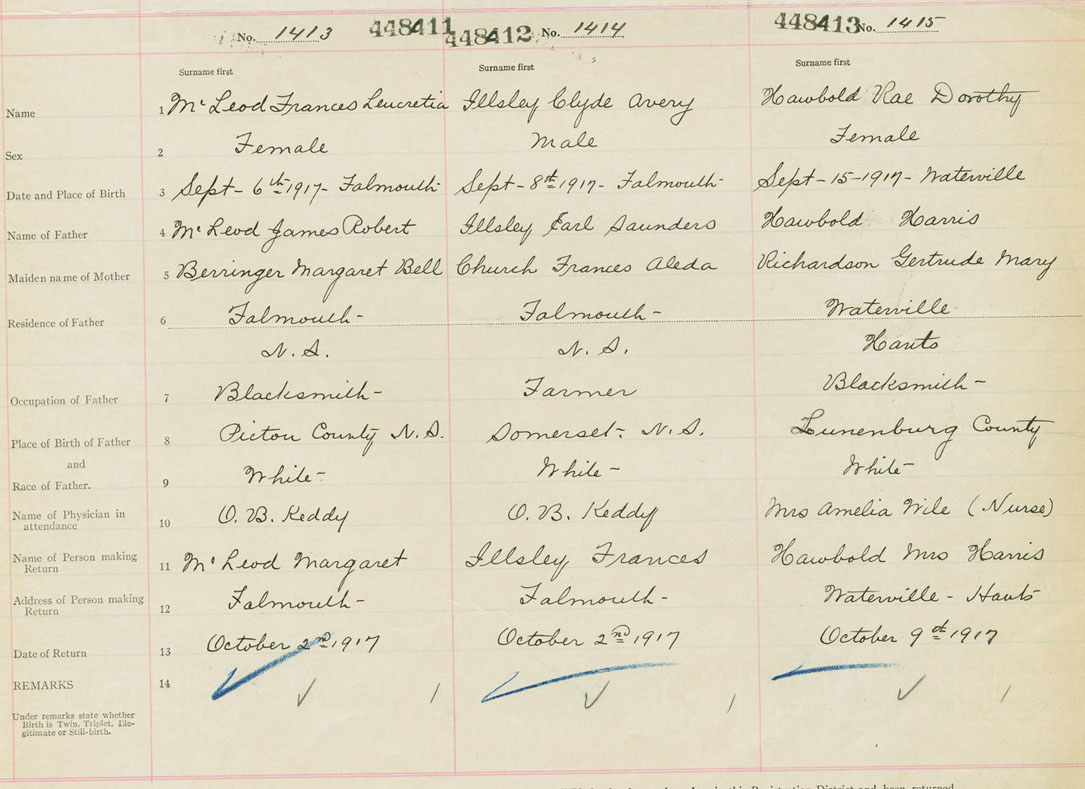 No. 1413 448411 448412 No. 1414 448413 No. 1415
Surname first Surname first Surname first
Name 1 McLeod Frances Leucretia Illsley Clyde Avery Hawbold Rae Dorothy
Sex 2 Female Male Female
Date and Place of Birth 3 Sept - 6th 1917 - Falmouth - Sept - 8th 1917 - Falmouth - Sept - 15 - 1917 - Waterville
Name of Father 4 McLeod James Robert Illsley Earl Saunders Hawbold Harris
Maiden name of Mother 5 Berringer Margaret Bell Church Frances Aleda Richardson Gertrude Mary
Residence of Father 6 Falmouth - Falmouth - Waterville
N. S. N. S. Hants
Occupation of Father 7 Blacksmith - Farmer Blacksmith -
Place of Birth of Father 8 Pictou County N. S. Somerset - N. S. Lunenburg County
and
Race of Father. 9 White - White - White -
Name of Physician in
attendance 10 O. B. Keddy O. B. Keddy Mrs Amelia Wile (Nurse)
Name of Person making
Return 11 McLeod Margaret Illsley Frances Hawbold Mrs Harris
Address of Person making
Return 12 Falmouth - Falmouth - Waterville - Hants
Date of Return 13 October 2nd 1917 October 2nd 1917 October 9th 1917
REMARKS 14
Under remarks state whether
Birth is Twin, Triplet, Ille-
gitimate or Still-birth.
this Registration District and been returned